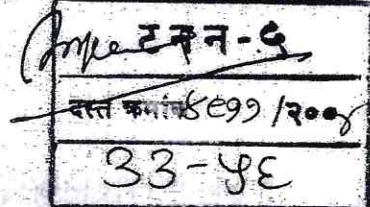 टनन-६
दस्त क्रमांक ४८११ /२००४
33-५६